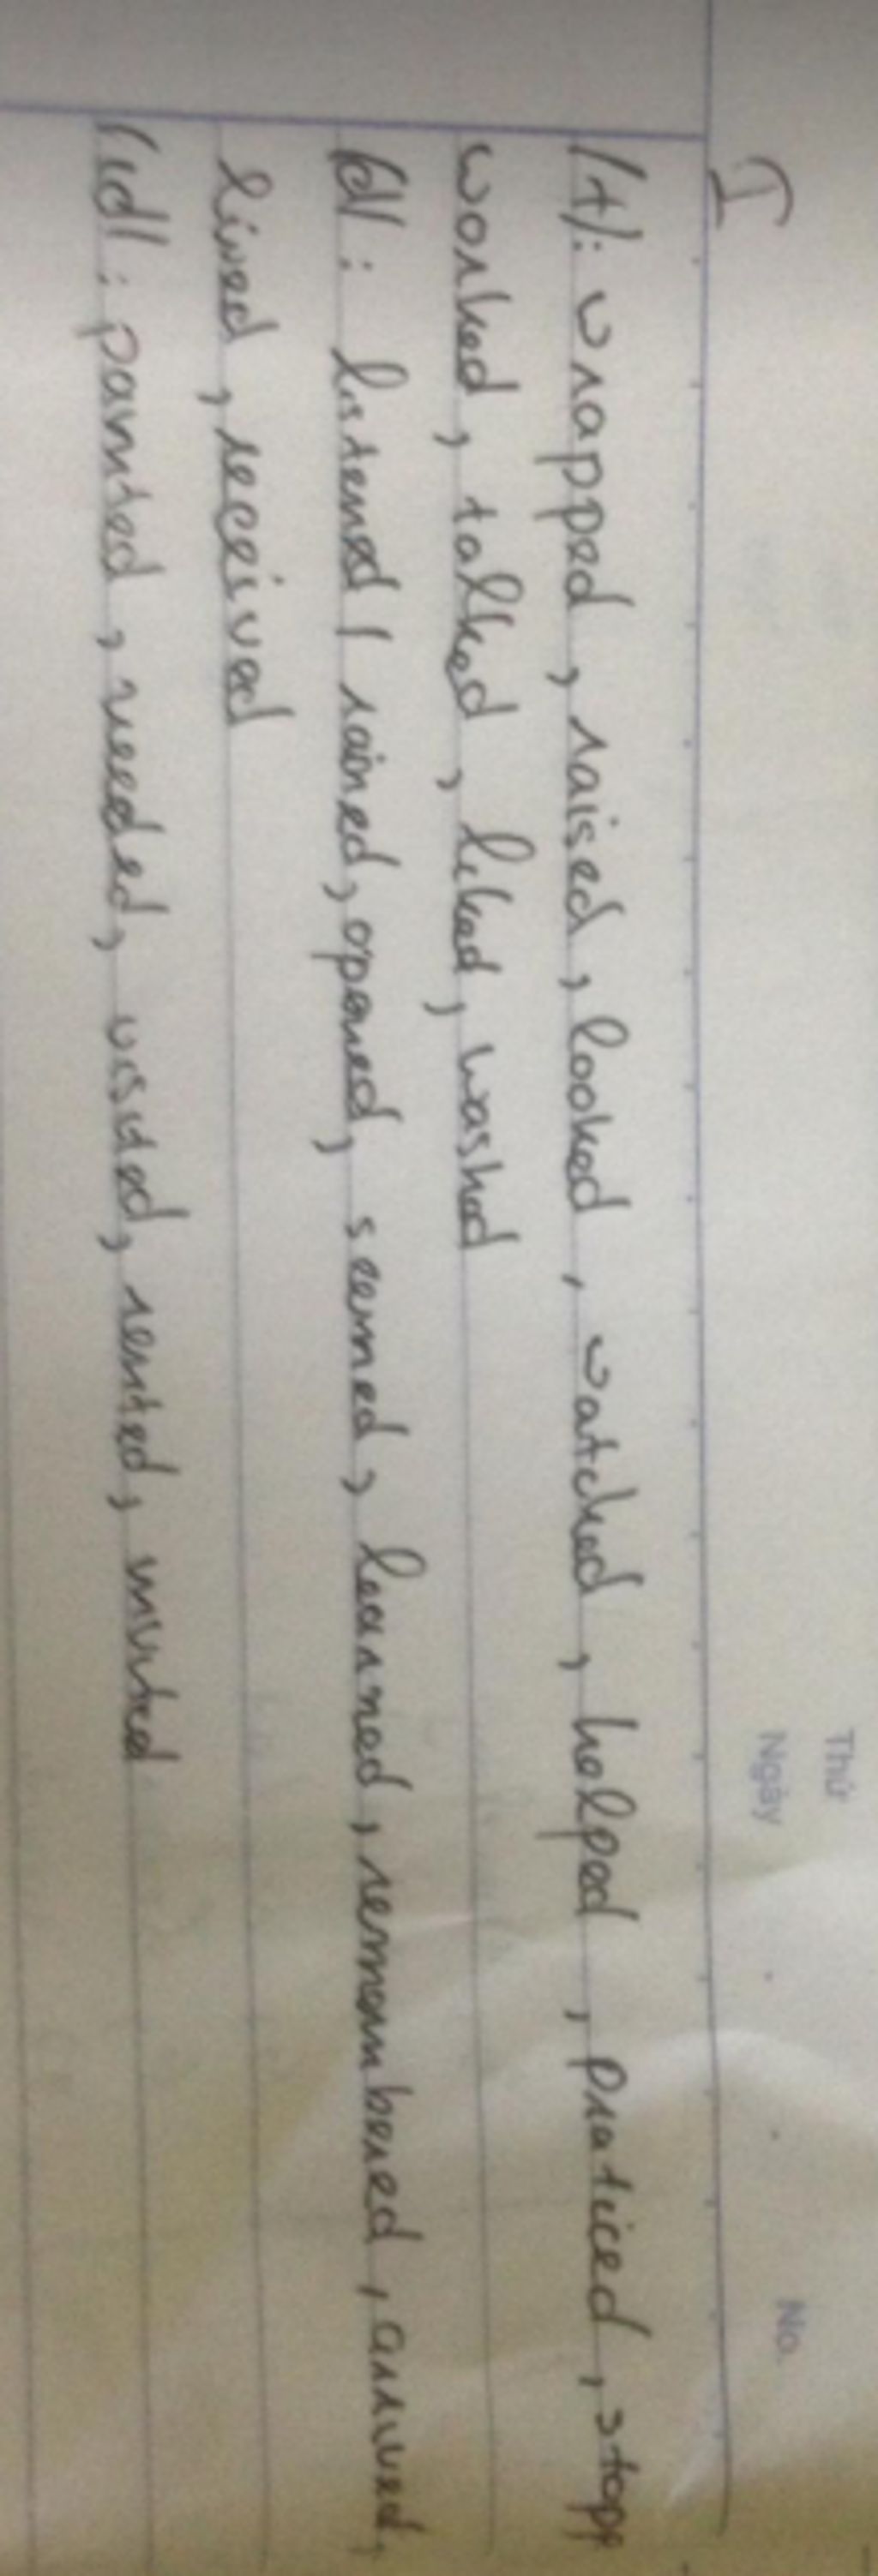 Thứ
Ngày No.
I
/t/: wrapped, raised, looked, watched, helped, praticed, stopp
worked, talked, liked, washed
/d/: listened, rained, opened, seemed, learned, remembered, arrived,
lived, received
/id/: painted, needed, visited, rented, invited